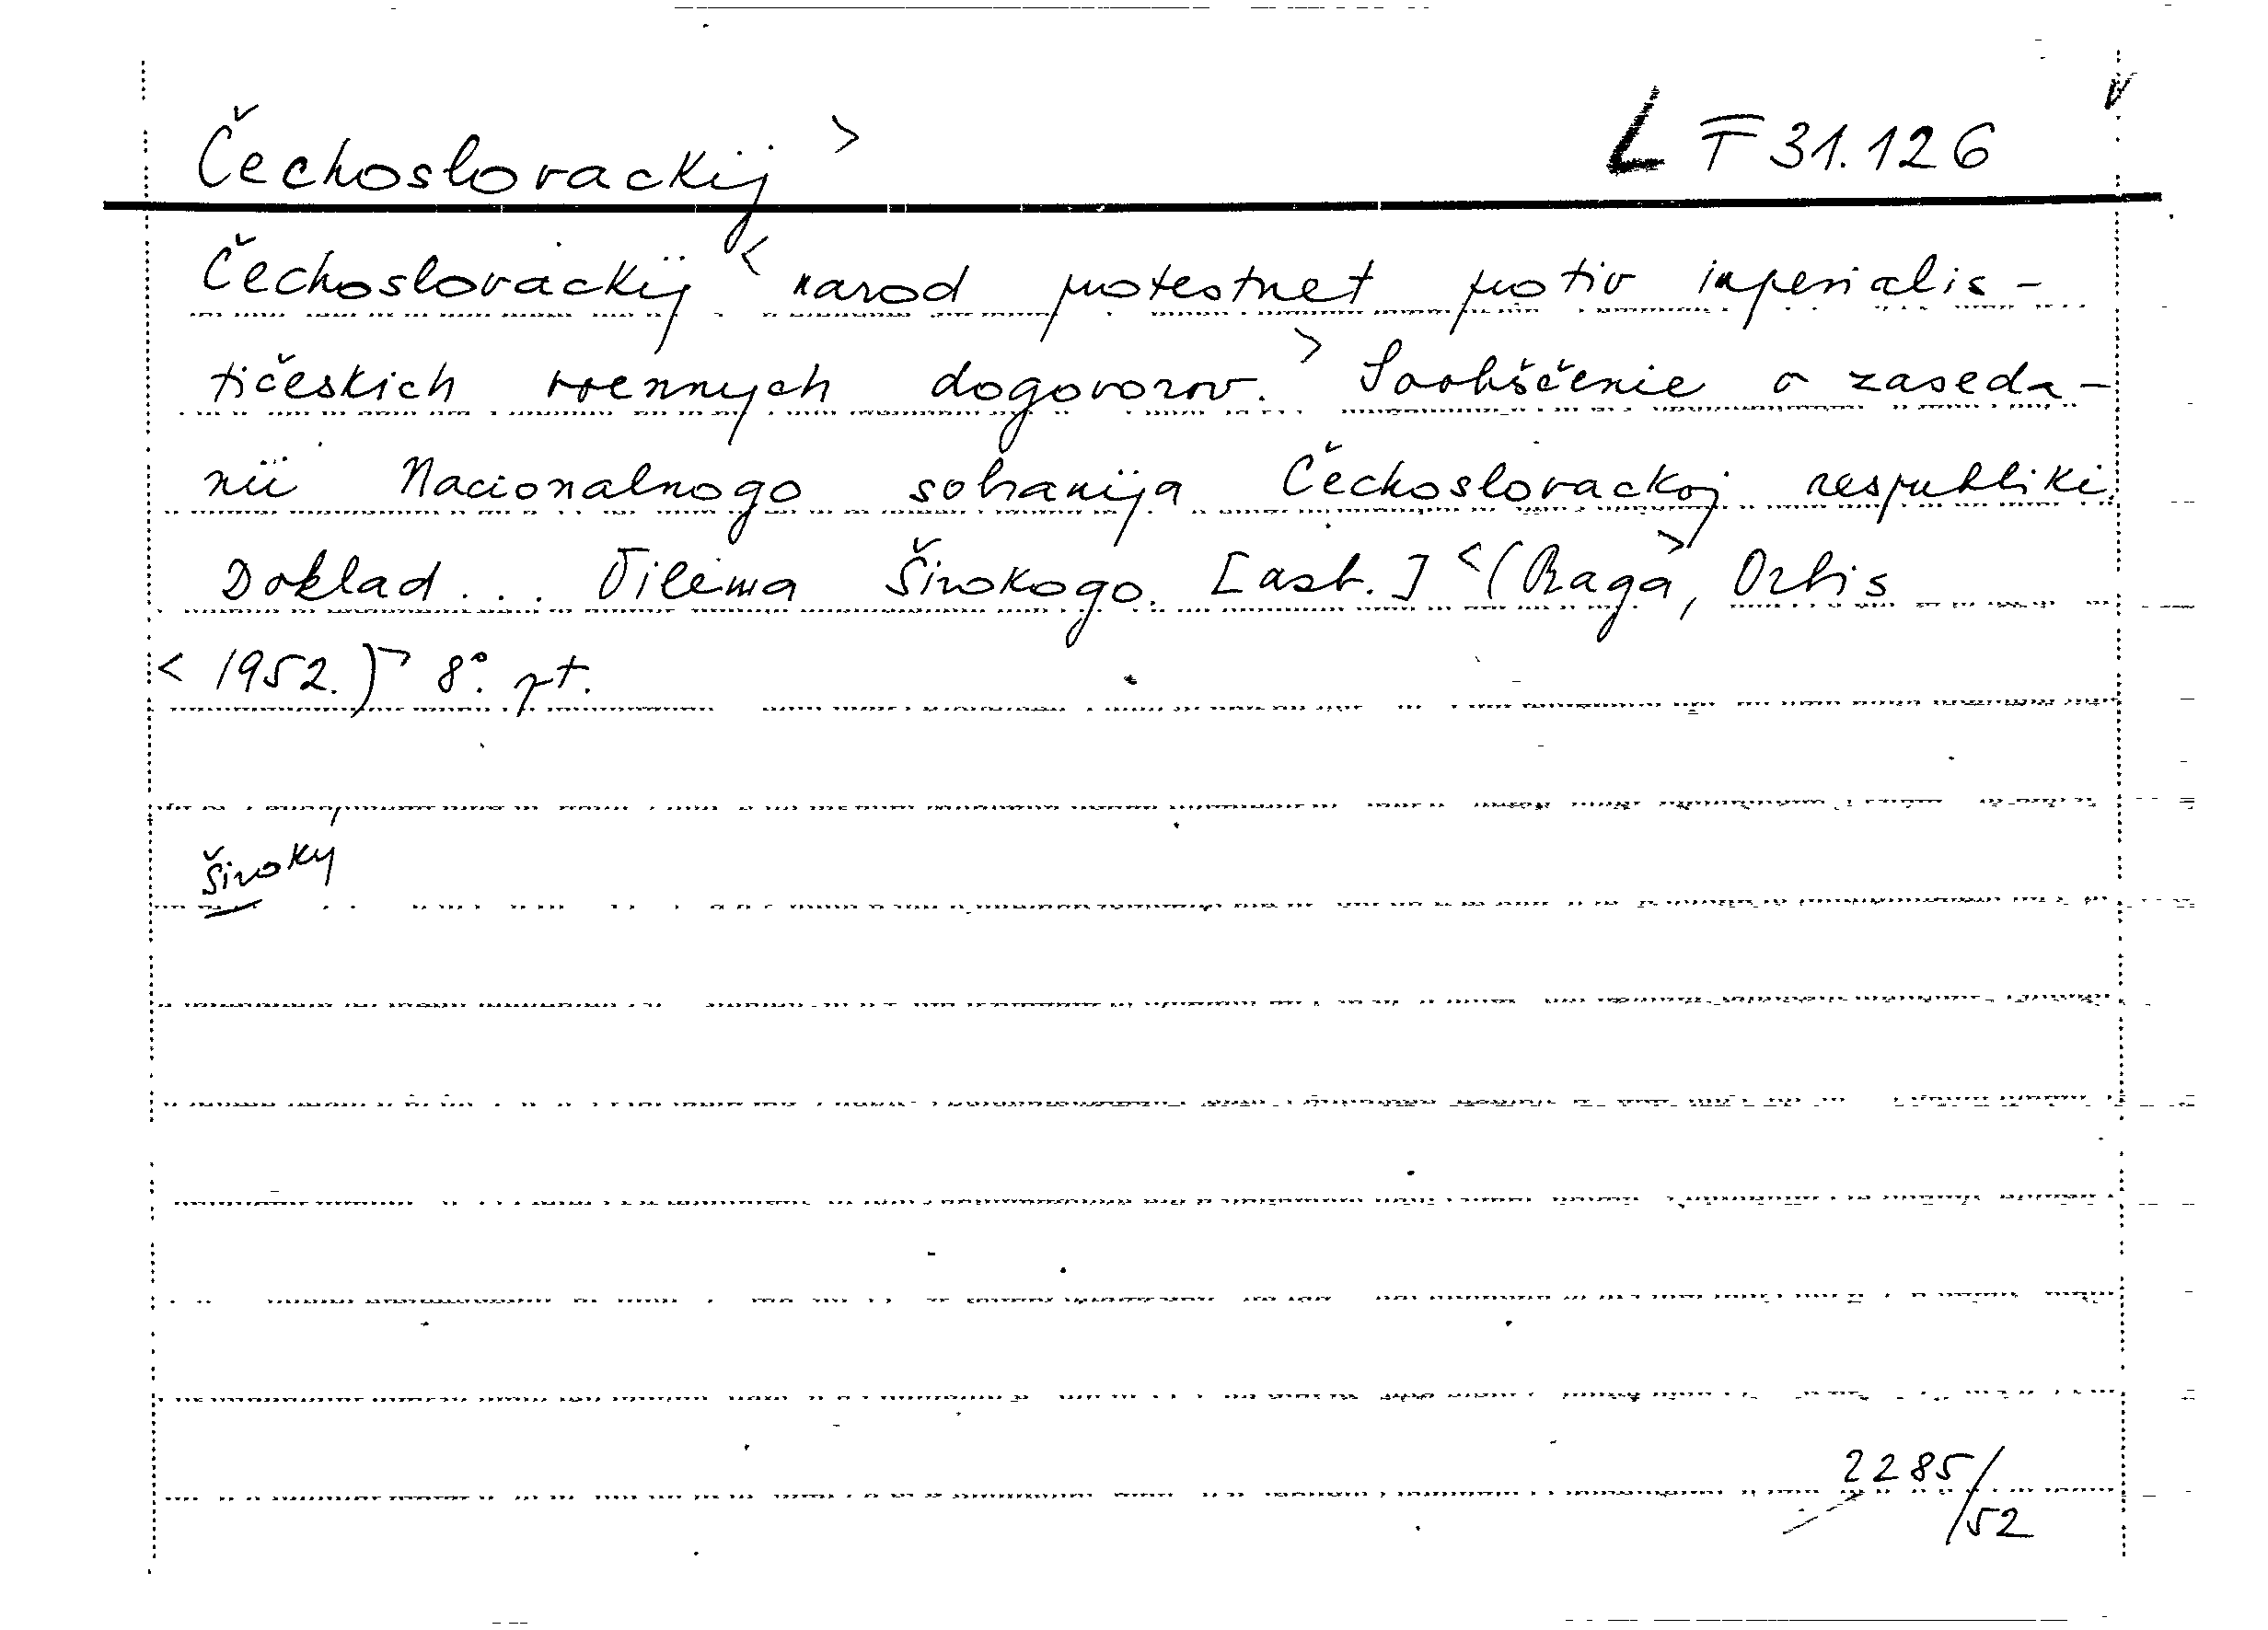 Čechoslovackij > L T 31.126
Čechoslovackij < narod protestuet protiv imperialis-
tičeskich voennych dogovorov. > Soobščenie o zaseda-
nii Nacionalnogo sobranija Čechoslovackoj respubliki.
Doklad... Viléma Širokogo. [ast.] < (Praga, > Orbis
< 1952.) > 8°. pt.
Široký
2285/52